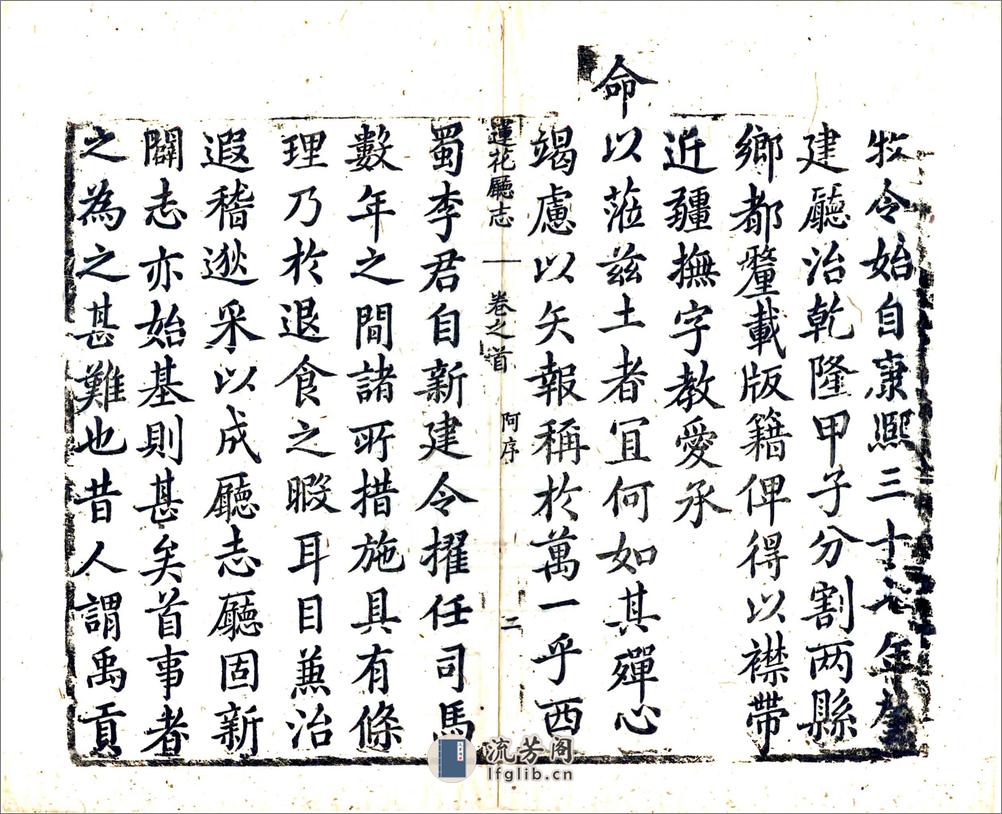 牧令始自康熙三十七年
建廳治乾隆甲子分割两縣
鄉都釐載版籍俾得以襟帶
近疆撫字教愛承
命以蒞兹土者冝何如其殫心
竭慮以矢報稱於萬一乎西
蓮花廳志 卷之首 阿序 二
蜀李君自新建令擢任司馬
數年之間諸所措施具有條
理乃於退食之暇耳目兼治
遐稽逖采以成廳志廳固新
闢志亦始基則甚矣首事者
之為之甚難也昔人謂禹貢
流芳阁
lfglib.cn